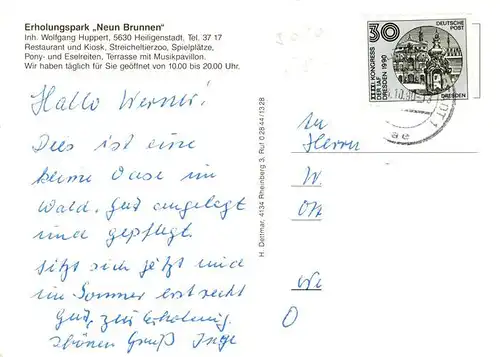 Erholungspark „Neun Brunnen“
Inh. Wolfgang Huppert, 5630 Heiligenstadt, Tel. 37 17
Restaurant und Kiosk, Streicheltierzoo, Spielplätze,
Pony- und Eselreiten, Terrasse mit Musikpavillon.
Wir haben täglich für Sie geöffnet von 10.00 bis 20.00 Uhr.
Hallo Werner!
Dies ist eine
kleine Oase im
Wald. Gut angelegt
und gepflegt.
sitzt sich jetzt und
im Sommer erst recht
gut, zur Erholung.
Schönen Gruß Inge
H. Dettmar, 4134 Rheinberg 3, Ruf 0 28 44 / 13 28
30
DEUTSCHE
POST
XXXIII. KONGRESS
DER IAF
DRESDEN 1990
DRESDEN
An
Herrn
W